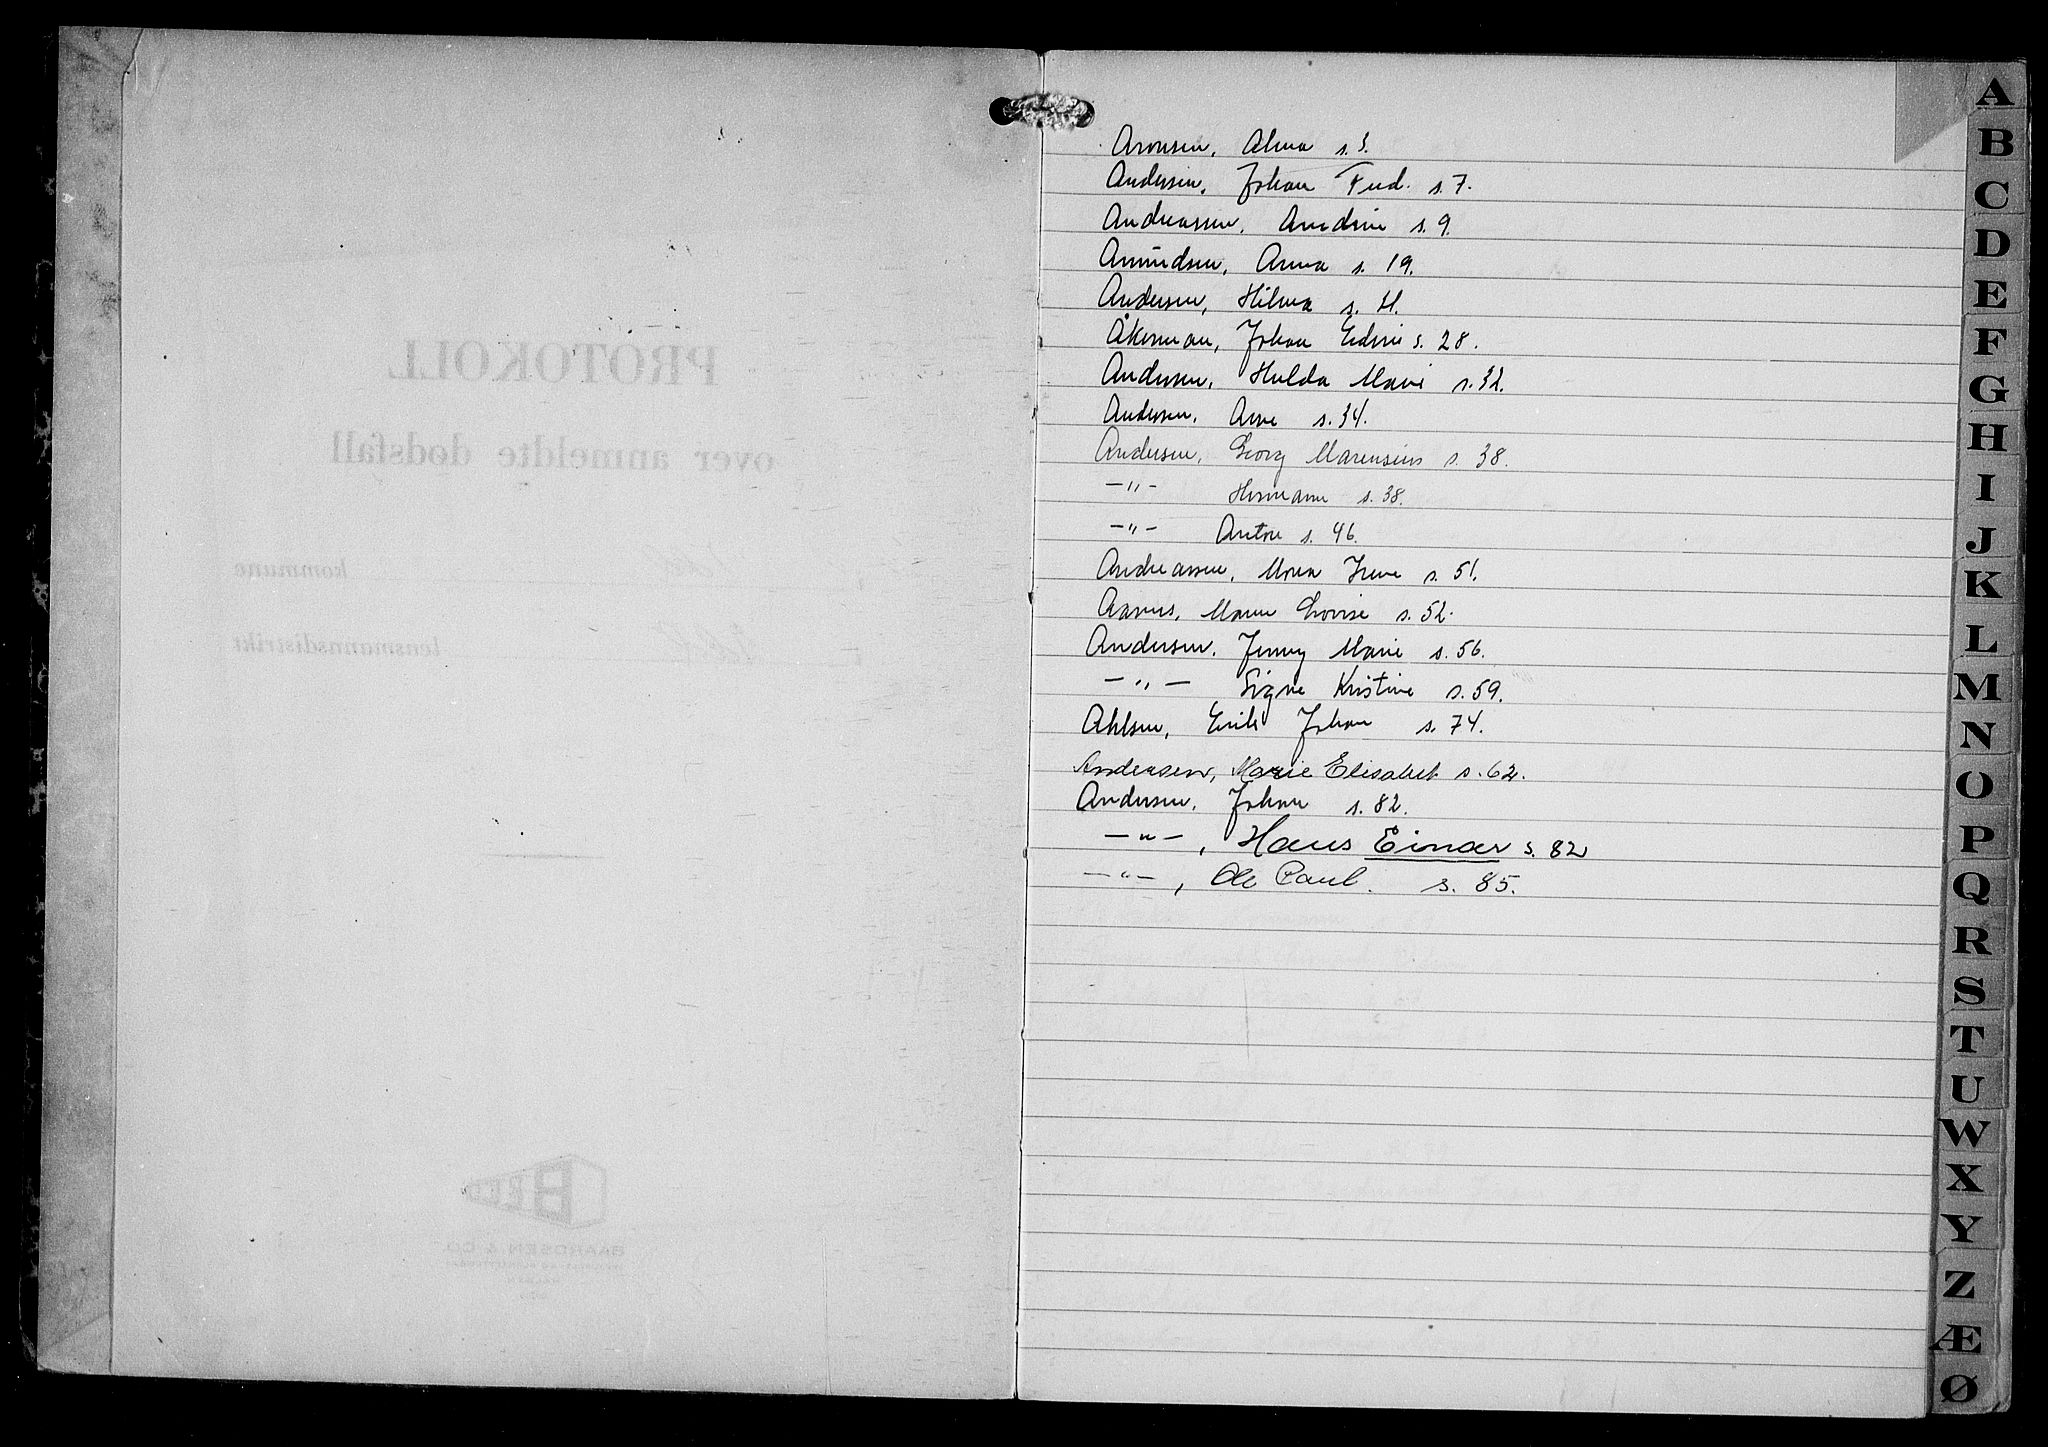 PROTOKOLL
over anmeldte dødsfall
kommune
lensmannsdistrikt
BAARDSEN & CO.
Aronsen, Alma s. 3.
Andersen, Johan Fred. s. 7.
Andreassen, Anedine s. 9.
Amundsen, Anna s. 19.
Andersen, Hilma s. 21.
Åkerman, Johan Edvin s. 28.
Andersen, Hulda Marie s. 32.
Andersen, Arne s. 34.
Andersen, Georg Marensius s. 38.
-"- Hermann s. 38.
-"- Anton s. 46.
Andreassen, Mona Irene s. 51.
Aarnes, Maren Lovise s. 52.
Andersen, Jenny Marie s. 56.
-"- Signe Kristine s. 59.
Ahlsen, Erik Johan s. 74.
Andersen, Marie Elisabet s. 62.
Andersen, Johan s. 82.
-"-, Hans Einar s. 82
-"-, Ole Paul. s. 85.
A
B
C
D
E
F
G
H
I
J
K
L
M
N
O
P
Q
R
S
T
U
W
X
Y
Z
Æ
Ø